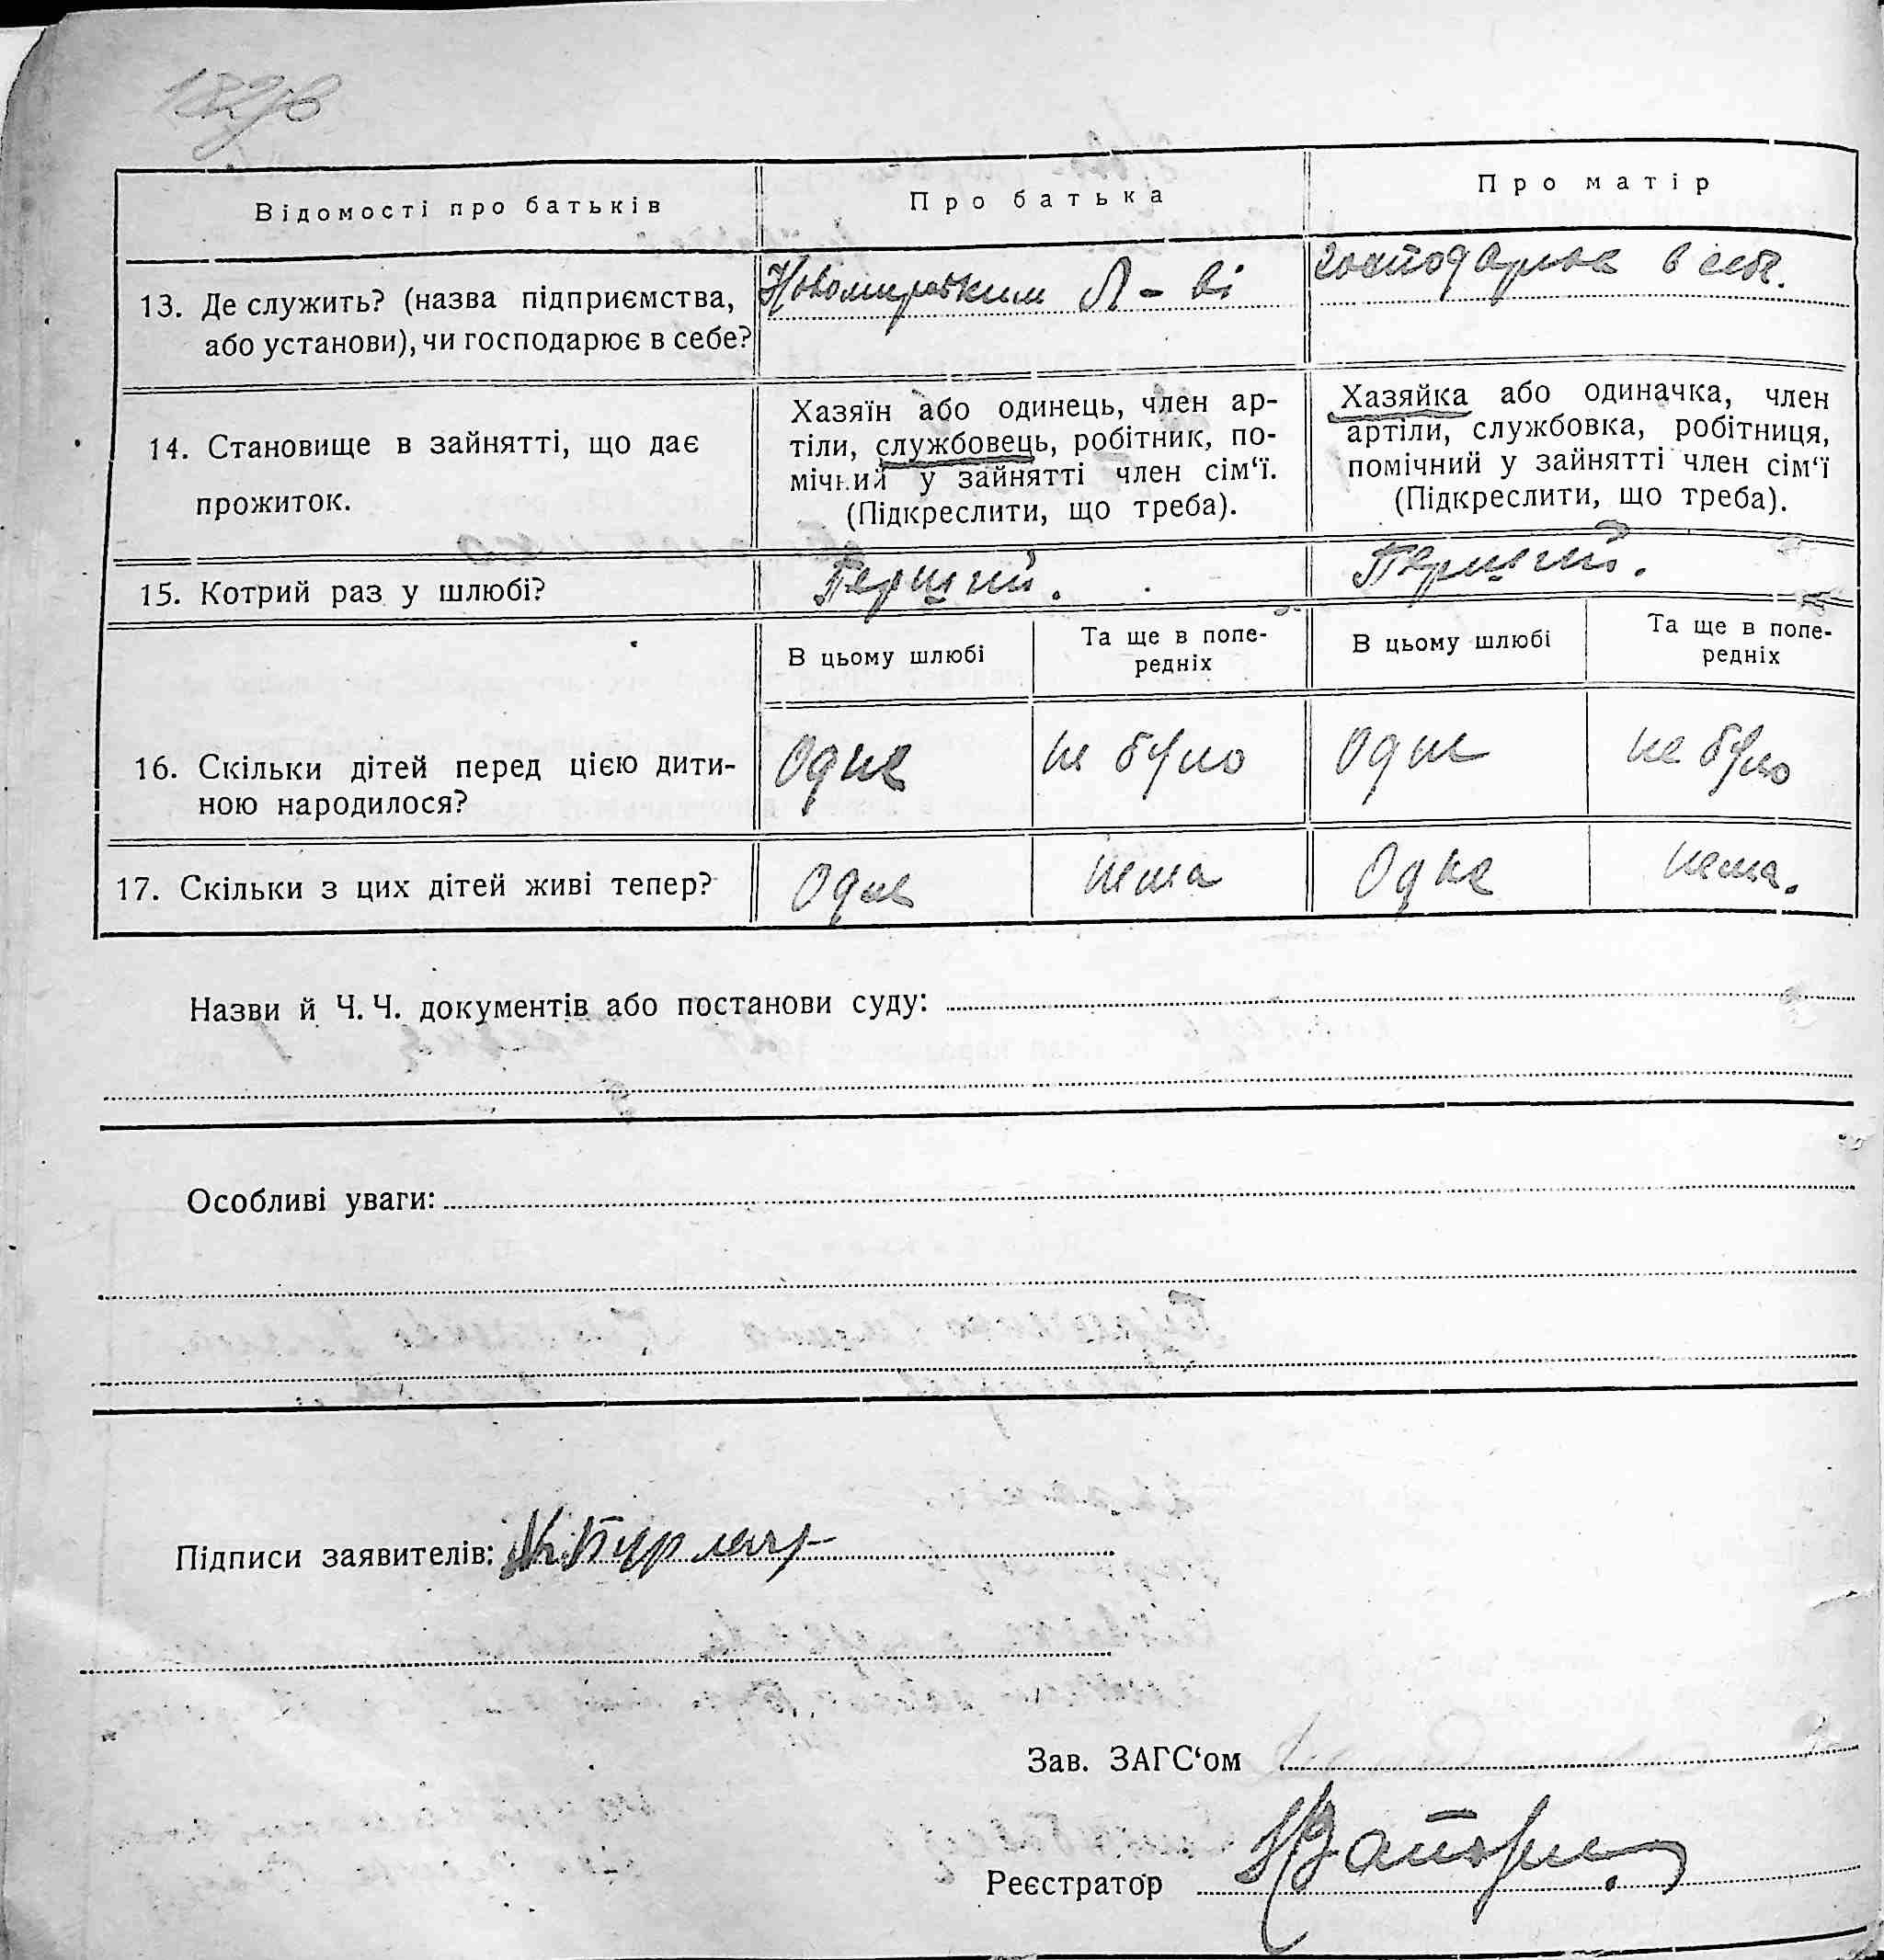 Відомості про батьків
Про батька
Про матір
13. Де служить? (назва підприємства, або установи), чи господарює в себе?
Л - ві
в себе.
14. Становище в зайнятті, що дає прожиток.
Хазяїн або одинець, член ар-
тіли, службовець, робітник, по-
мічний у зайнятті член сім‘ї.
(Підкреслити, що треба).
Хазяйка або одиначка, член
артіли, службовка, робітниця,
помічний у зайнятті член сім‘ї
(Підкреслити, що треба).
15. Котрий раз у шлюбі?
Перший.
Перший.
В цьому шлюбі
Та ще в попе-
редніх
В цьому шлюбі
Та ще в попе-
редніх
16. Скільки дітей перед цією дити-
ною народилося?
Одне
не було
Одне
не було
17. Скільки з цих дітей живі тепер?
Одне
нема
Одне
нема.
Назви й Ч. Ч. документів або постанови суду:
Особливі уваги:
Підписи заявителів:
Зав. ЗАГС‘ом
Реєстратор